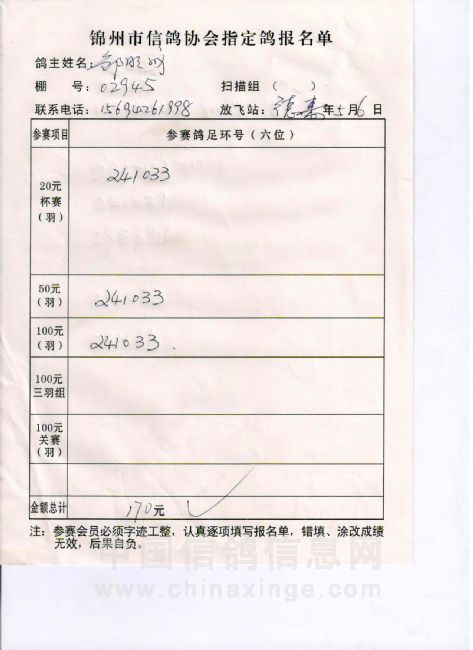 锦州市信鸽协会指定鸽报名单
鸽主姓名:
棚 号: 02945 扫描组 ( )
联系电话: 15694261998 放飞站: 德惠 年 5 月 6 日
参赛项目 参赛鸽足环号(六位)
20元
杯赛
(羽)
241033
50元
(羽)
241033
100元
(羽)
241033.
100元
三羽组
100元
关赛
(羽)
金额总计 170元 ✓
注: 参赛会员必须字迹工整,认真逐项填写报名单,错填、涂改成绩
无效,后果自负。
中国信鸽信息网
www.chinaxinge.com